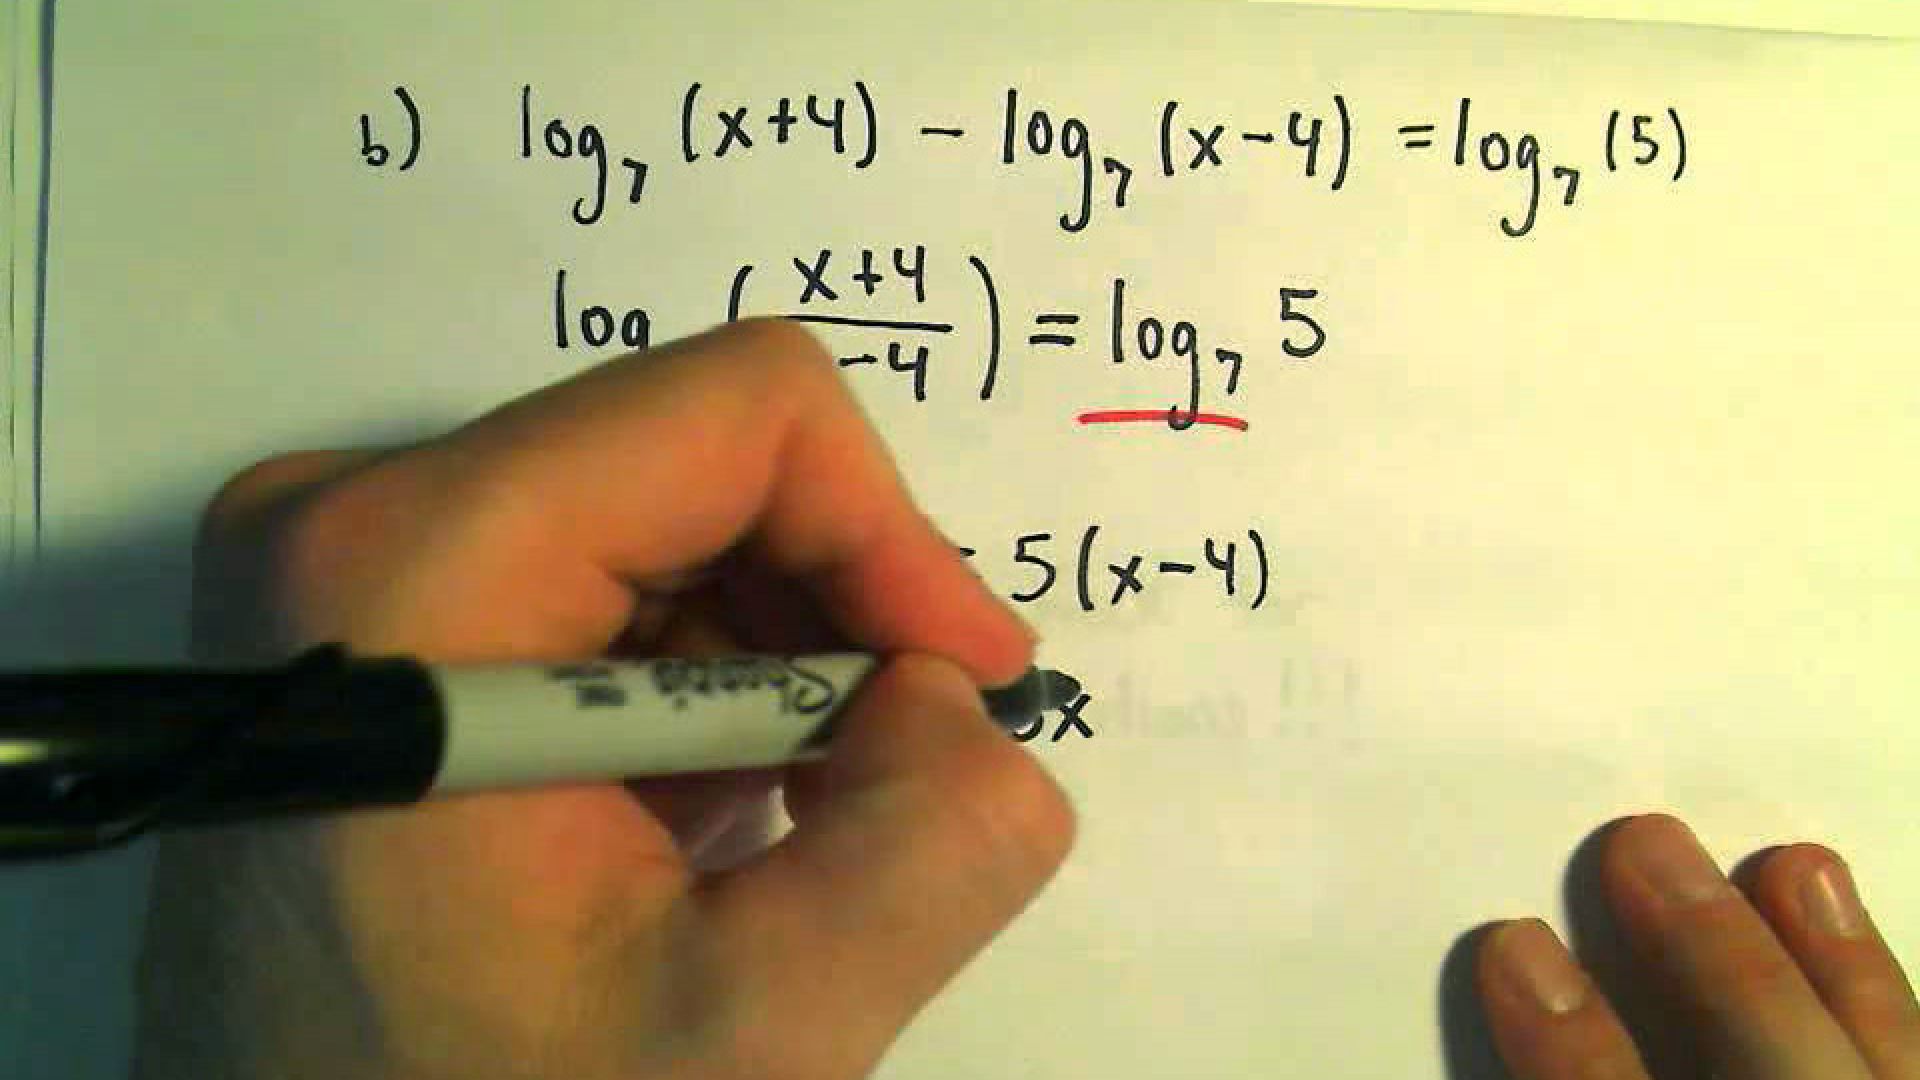 b) log₇ (x+4) - log₇ (x-4) = log₇ (5)
log ( x+4 / -4 ) = log₇ 5
= 5(x-4)
5x
Sharpie